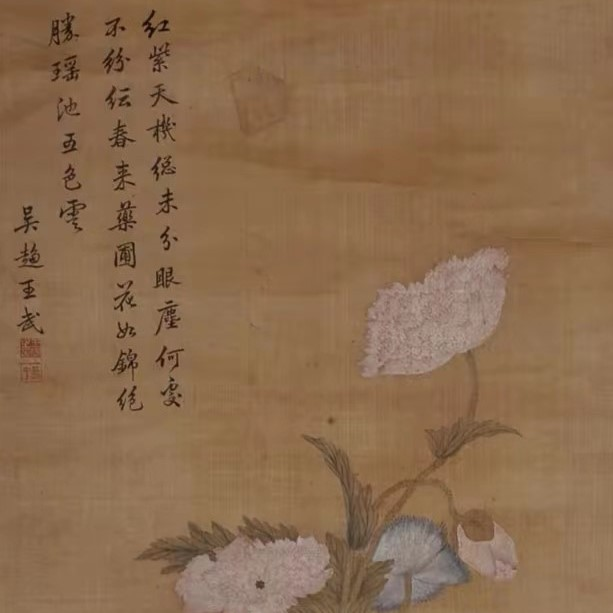 红紫天機縂未分眼塵何處
不紛紜春来藥圃花如錦絶
勝瑶池五色雲
吴趨王武